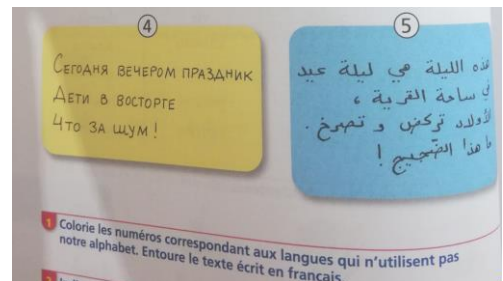 ④
Сегодня вечером праздник
Дети в восторге
Что за шум !
⑤
هذه الليلة هي ليلة عيد
في ساحة القرية ،
الأولاد تركض و تصرخ .
ما هذا الضّجيج !
1 Colorie les numéros correspondant aux langues qui n'utilisent pas
notre alphabet. Entoure le texte écrit en français.
2